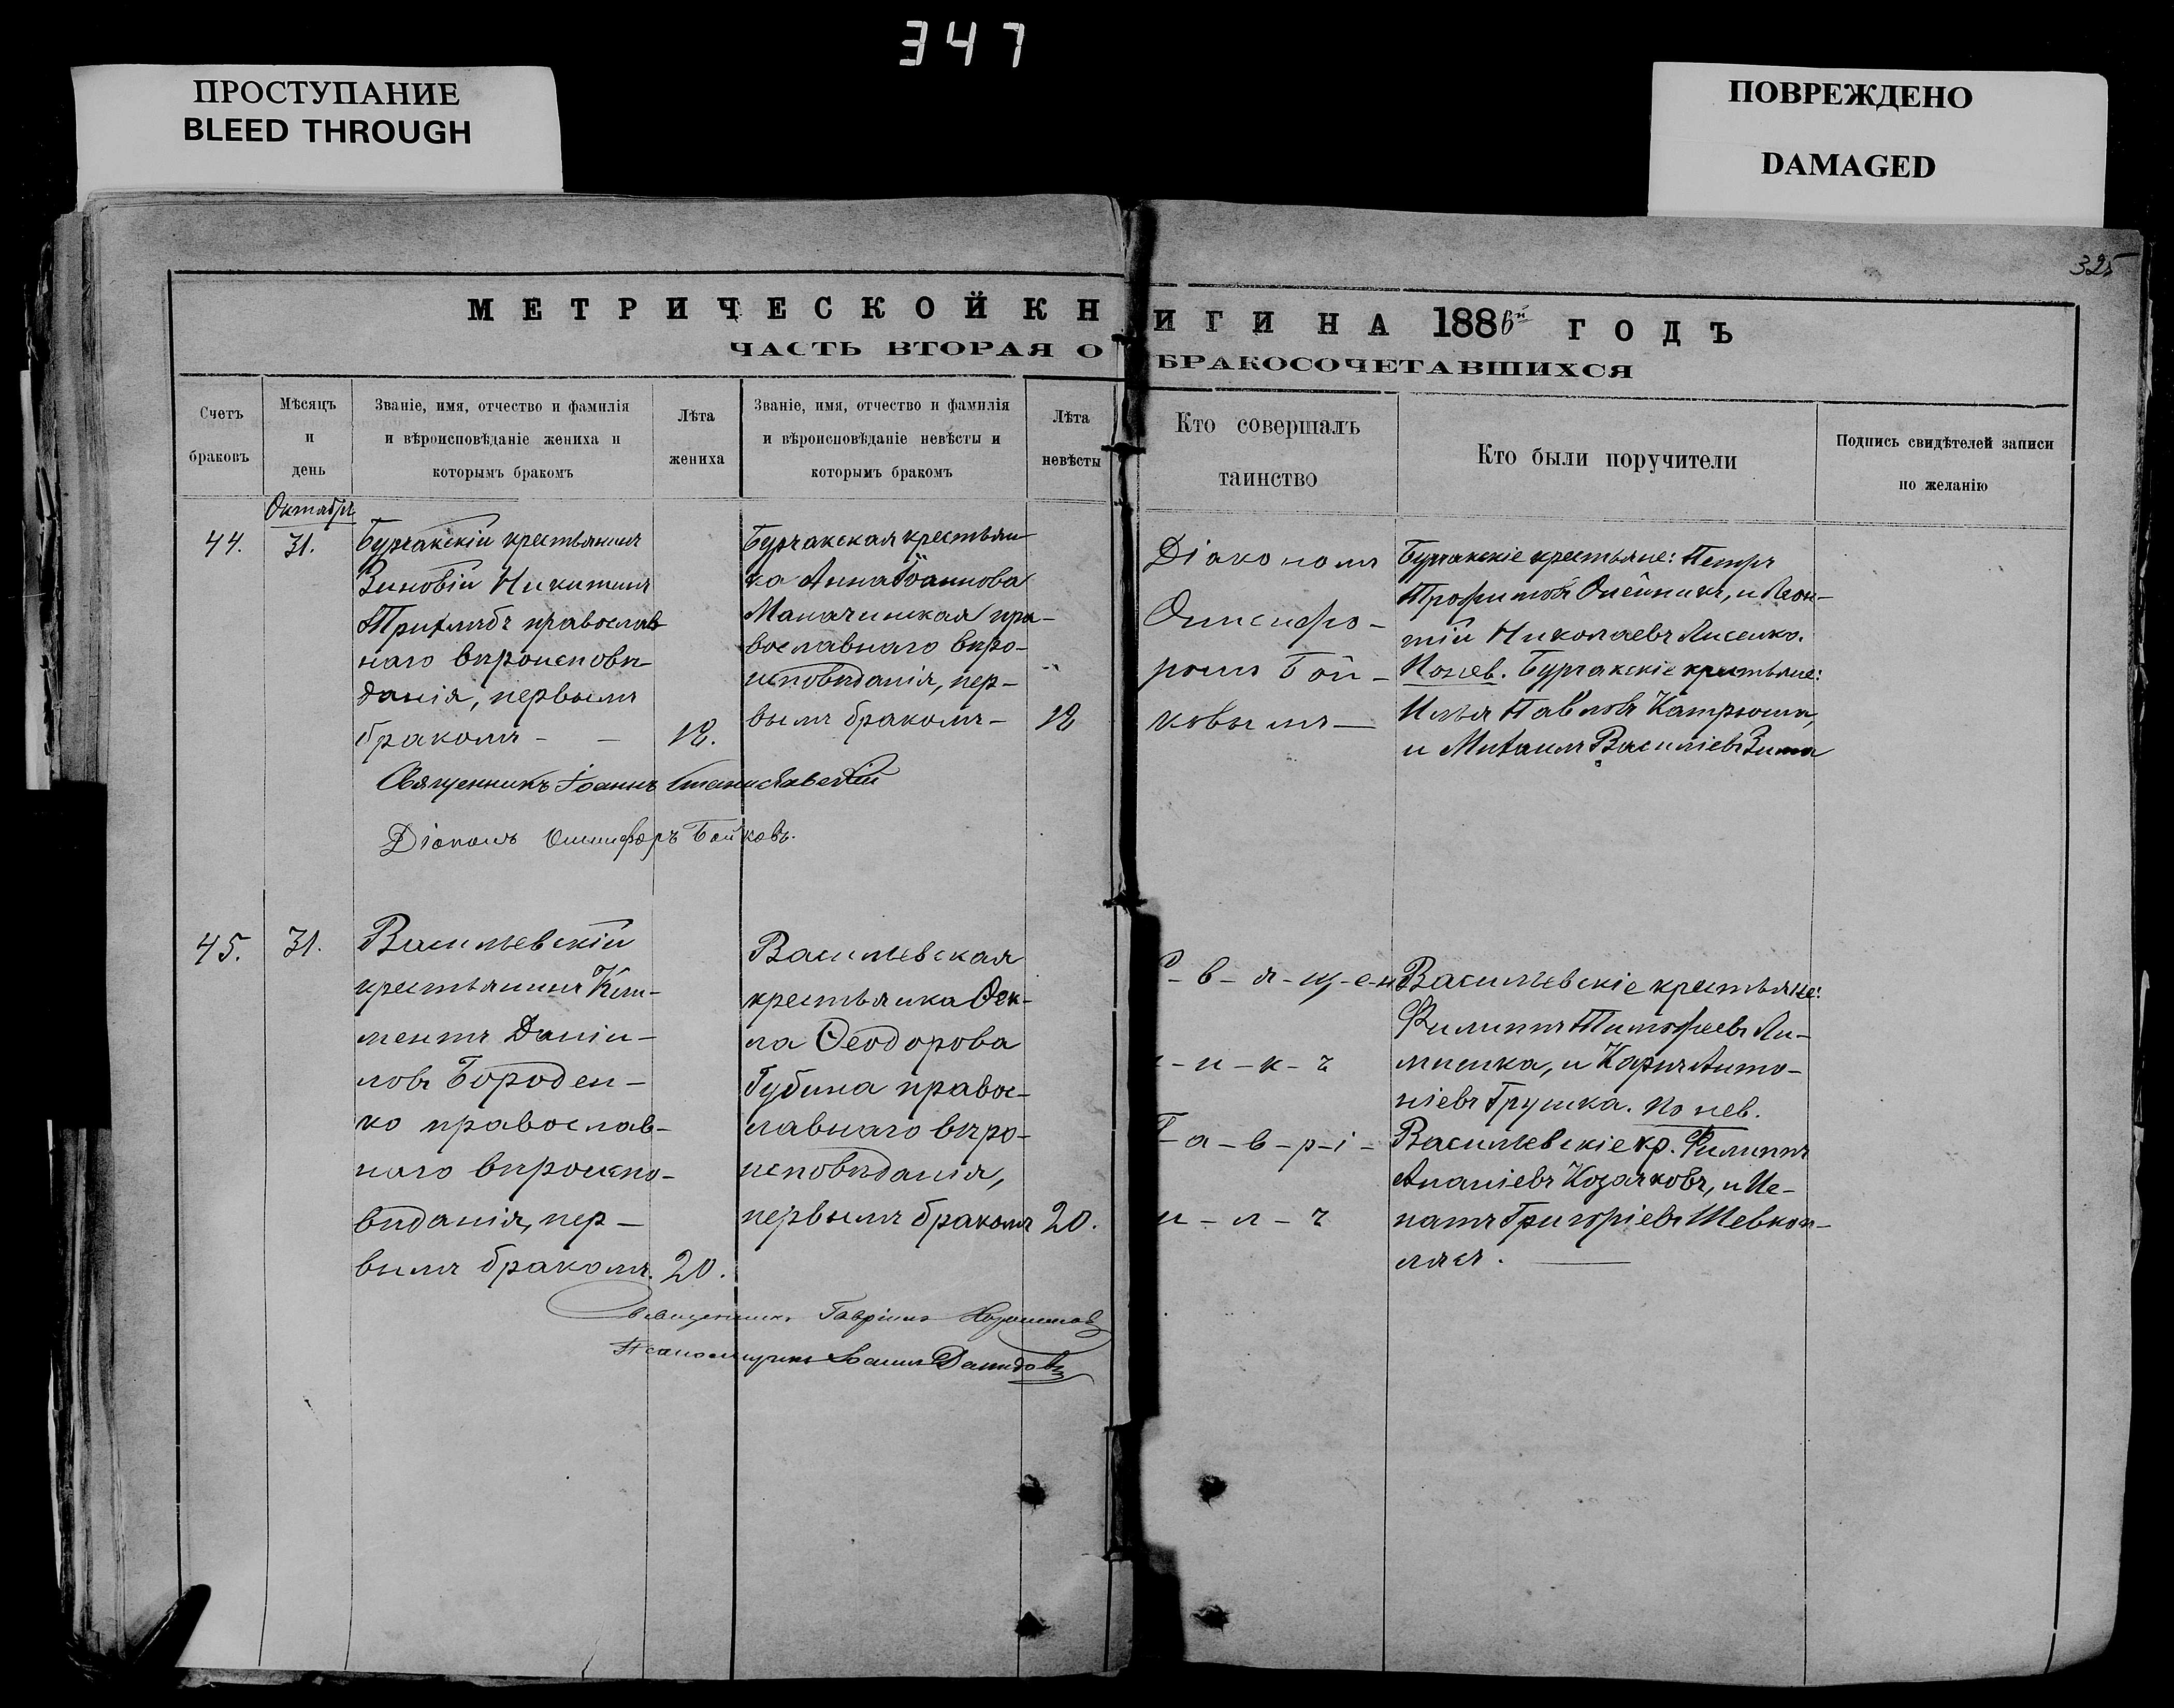 347
ПРОСТУПАНИЕ
BLEED THROUGH
ПОВРЕЖДЕНО
DAMAGED
325
МЕТРИЧЕСКОЙ КНИГИ НА 1886й ГОДЪ
ЧАСТЬ ВТОРАЯ О БРАКОСОЧЕТАВШИХСЯ
Счетъ
браковъ
Мѣсяцъ
и
день
Званіе, имя, отчество и фамилія
и вѣроисповѣданіе жениха и
которымъ бракомъ
Лѣта
жениха
Званіе, имя, отчество и фамилія
и вѣроисповѣданіе невѣсты и
которымъ бракомъ
Лѣта
невѣсты
Кто совершалъ
таинство
Кто были поручители
Подпись свидѣтелей записи
по желанію
Октября
44.
31.
Бурчакскій крестьянинъ
Зиновій Никитинъ
православ
наго вѣроисповѣ
данія, первымъ
бракомъ - -
18.
Бурчакская крестьян
ка Анна Іоаннова
пра-
вославнаго вѣро-
исповѣданія, пер-
вымъ бракомъ -
18
Діакономъ
Онисифо-
ромъ Бой-
ковымъ —
Бурчакскіе крестьяне: Петръ
Трофимовъ Олейникъ, и Леон-
тій Николаевъ Лисенко.
По нев. Бурчакскіе крестьяне:
Илья Павловъ Катрюша,
и Михаилъ Василіевъ Зима
Священникъ Іоаннъ Станиславскій
Діаконъ Онисифоръ Бойковъ.
45.
31.
Васильевскій
крестьянинъ Кли-
ментъ Даніи-
ловъ Бороден-
ко православ-
наго вѣроиспо-
вѣданія, пер-
вымъ бракомъ.
20.
Васильевская
крестьянка Ѳек-
ла Ѳеодорова
Губина правос-
лавнаго вѣро-
исповѣданія,
первымъ бракомъ
20.
С-в-я-щ-е-н
-н-и-к-ъ
Г-а-в-р-і-
и-л-ъ
Васильевскіе крестьяне:
Филиппъ Тимофеевъ Ли-
и Карпъ Анто-
ніевъ Грушка. По нев.
Васильевскіе кр. Филиппъ
Ананіевъ Козачковъ, и Иг-
натъ Григоріевъ Шевкоп-
лясъ. —
Священникъ Гавріилъ
Псаломщикъ Іоаннъ Давидовъ